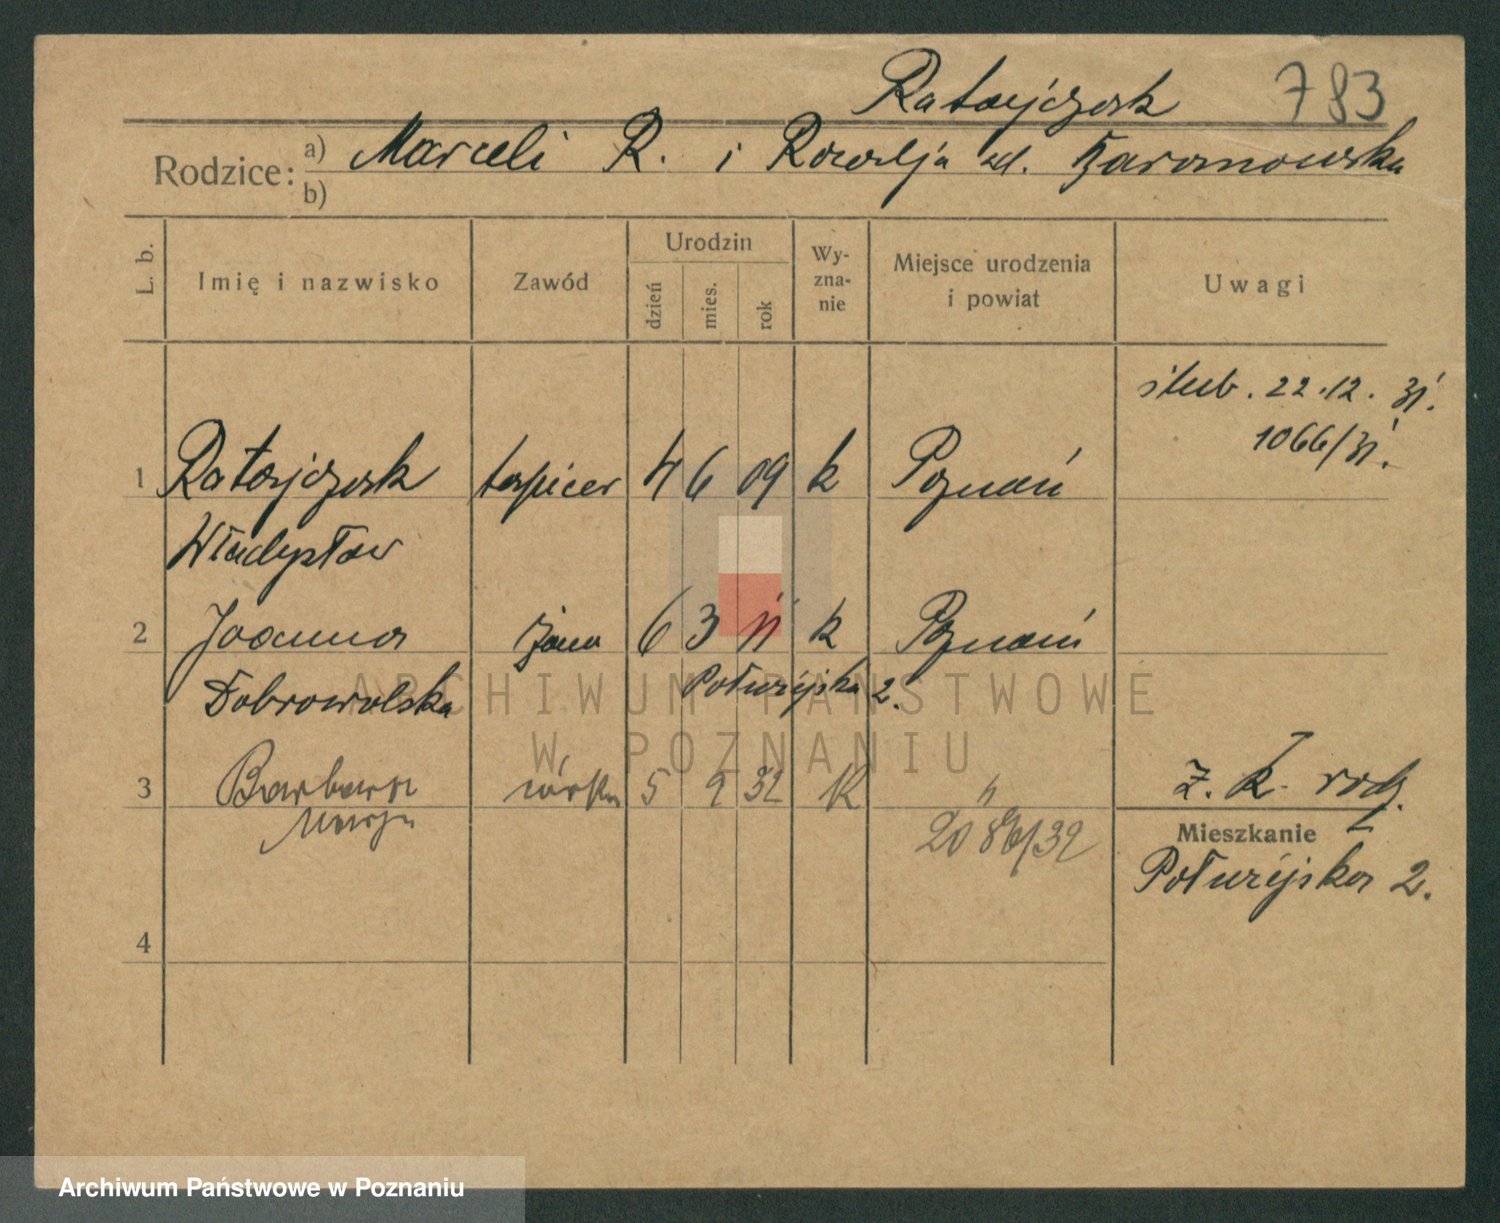 Ratajczak 783
Rodzice: a) Marceli R. i Rozalja zd.
b)
L. b.
Imię i nazwisko
Zawód
Urodzin
dzień
mies.
rok
Wy-
zna-
nie
Miejsce urodzenia
i powiat
Uwagi
ślub. 22.12.31.
1066/31.
1 Ratajczak tapicer 4 6 09 k Poznań
Władysław
2 Joanna żona 6 3 11 k Poznań
Dobrowolska
3 Barbara córka 5 9 32 k "
Marja
Z. K. rodz.
Mieszkanie
2.
4
ARCHIWUM PAŃSTWOWE
W POZNANIU
Archiwum Państwowe w Poznaniu